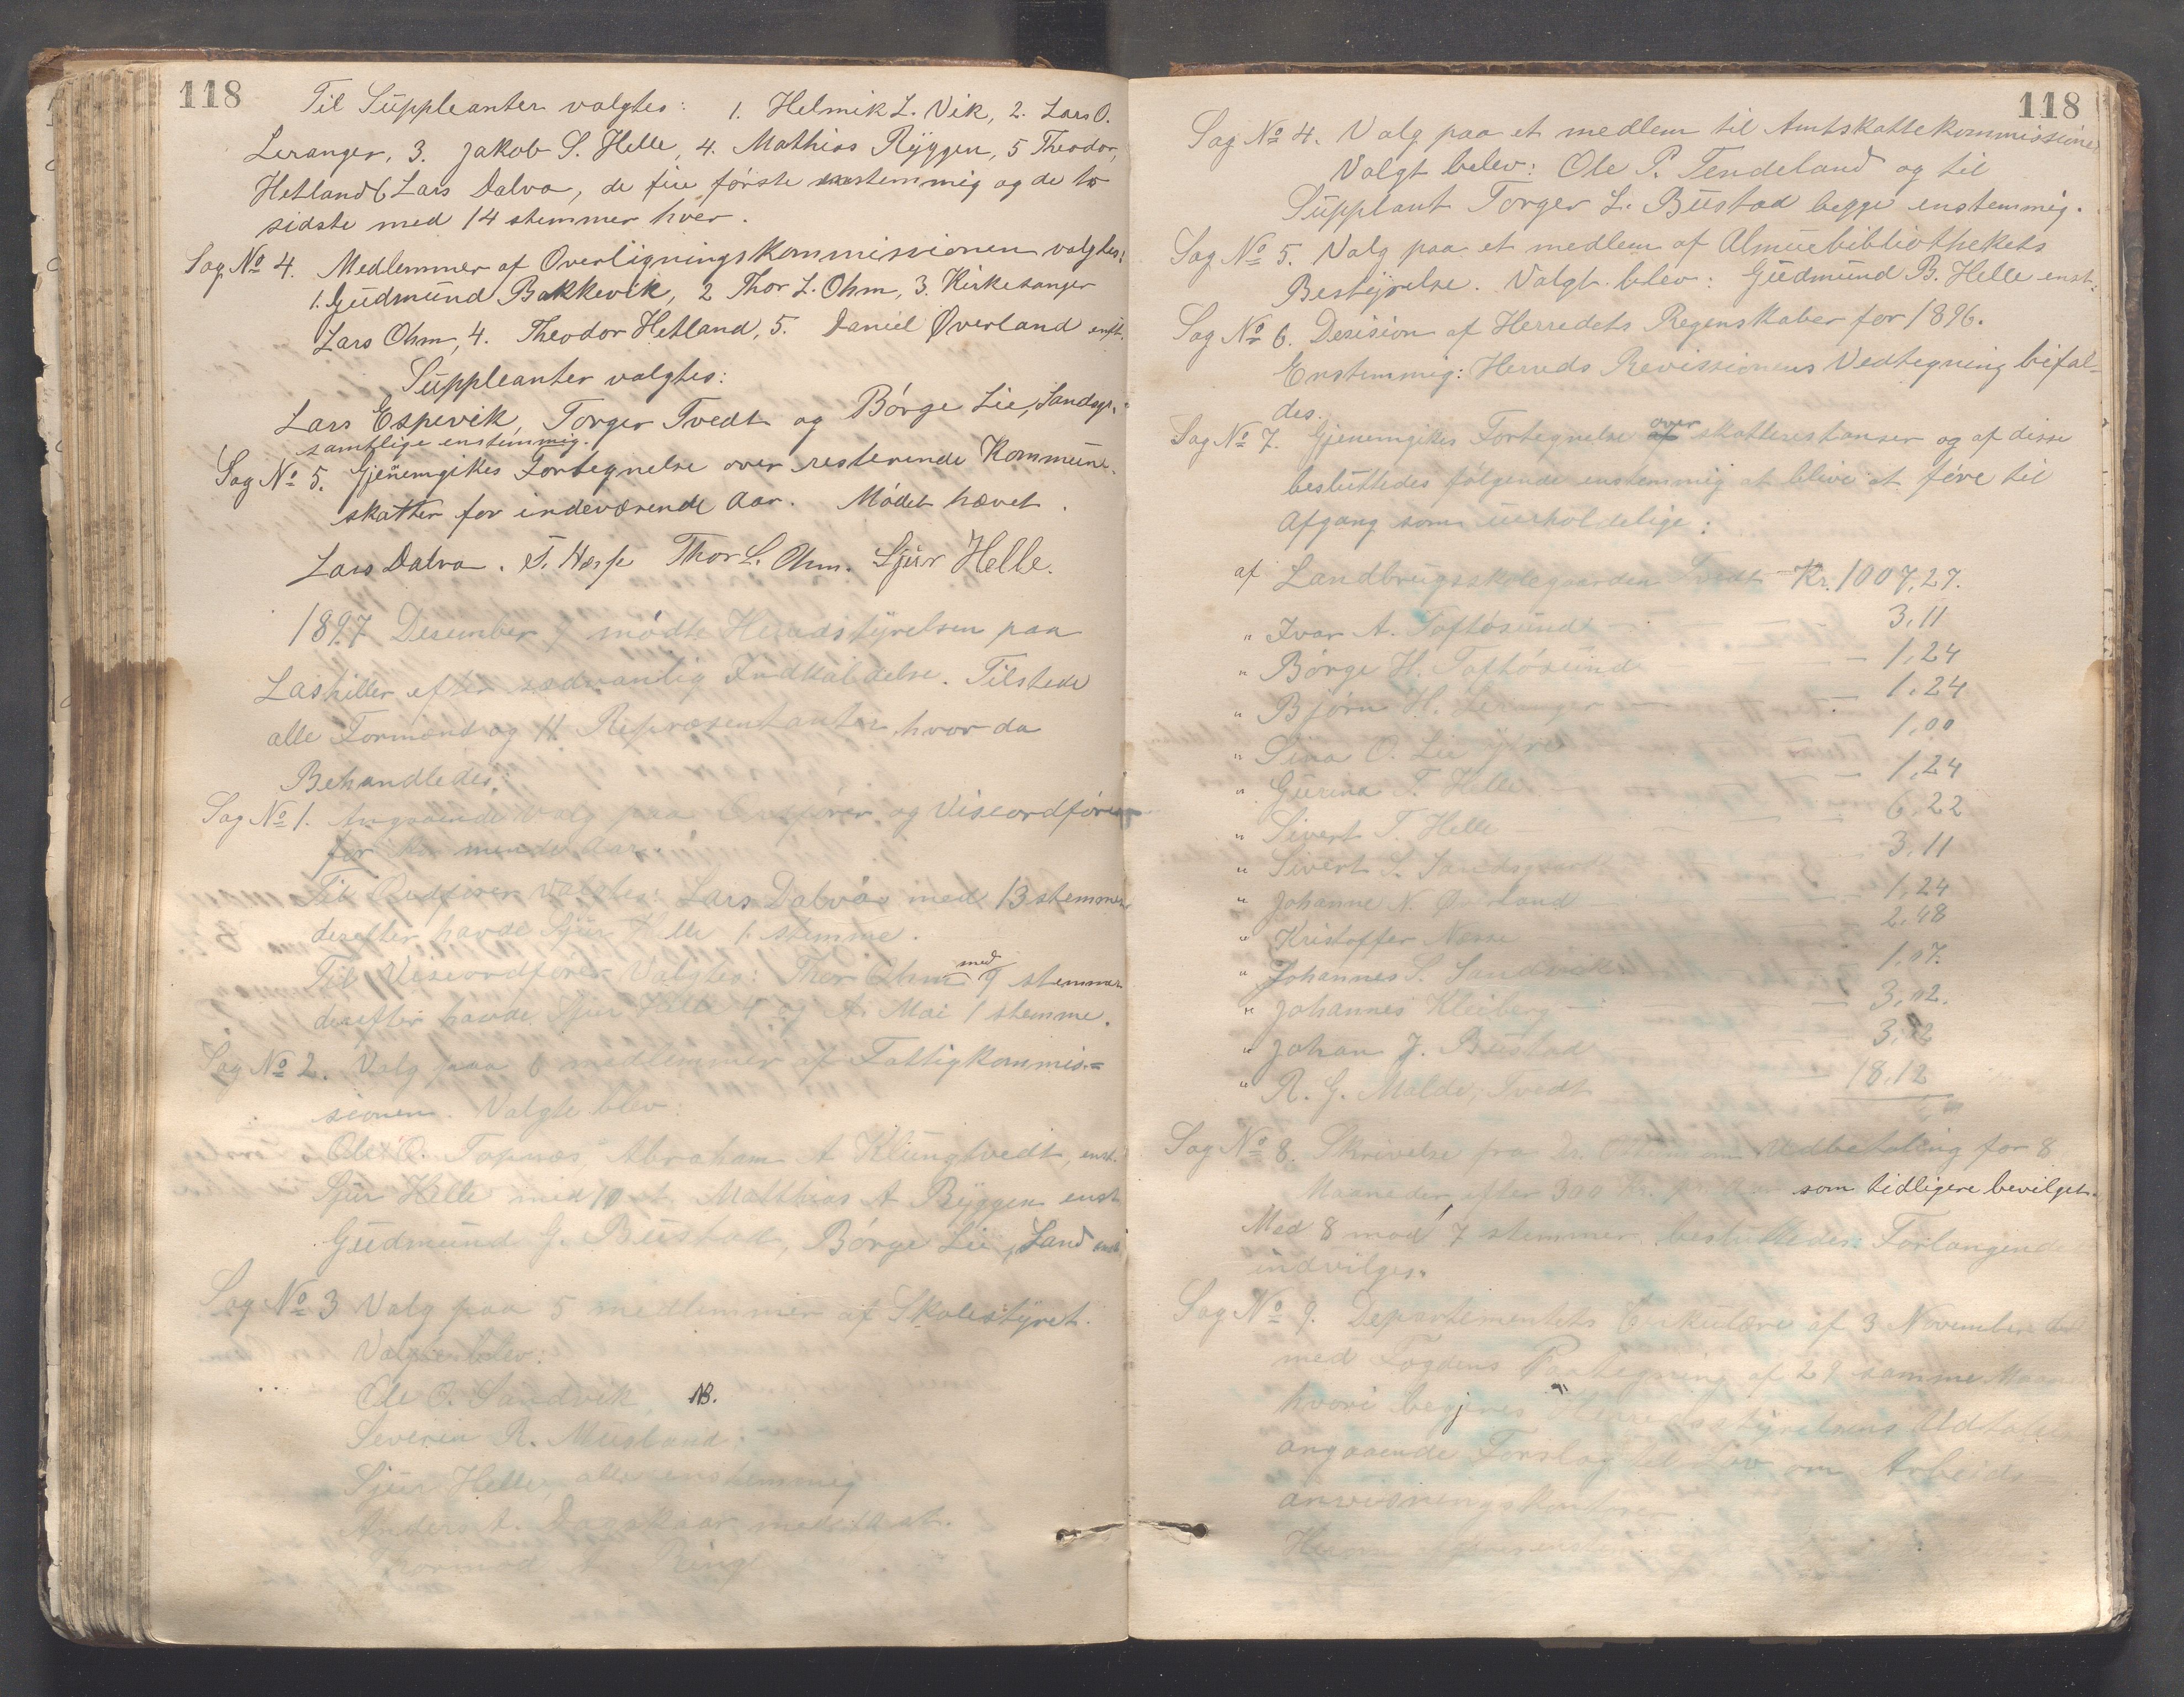 118
Til Suppleanter valgtes: 1. Helmik L. Vik, 2. Lars O.
Leranger, 3. Jakob S. Helle, 4. Mathias Ryggen, 5 Theodor,
Hetland 6 Lars Dalva, de fire første enstemmig og de to
sidste med 14 stemmer hver.
Sag No 4. Medlemmer af Overligningskommissionen valgtes:
1. Gudmund Bakkevik, 2 Thor L. Ohm, 3. Kirkesanger
Lars Ohm, 4. Theodor Hetland, 5. Daniel Øverland enst.
Suppleanter valgtes:
Lars Espevik, Torger Tvedt og Børge Lie, Sandsgr.
samtlige enstemmig.
Sag No 5. Gjenemgikes Fortegnelse over resterende Kommune-
skatter for indeværende Aar. Mødet hævet.
Lars Dalva. Thor L. Ohm. Sjur Helle.
1897 Desember 9 mødte Herredstyrelsen paa
Lashiller efter sædvanlig Indkaldelse. Tilstede
alle Formænd og 11 Repræsentanter, hvor da
Behandledes:
Sag No 1. Angaaende valg paa Ordfører og Viseordfører
for kommende Aar.
Til Ordfører valgtes: Lars Dalva med 13 stemmer
desefter havde Sjur Helle 1 stemme.
Til Viseordfører Valgtes: Thor Ohm med 9 stemmer
desefter havde Sjur Helle 4 og A. Mai 1 stemme.
Sag No 2. Valg paa 6 medlemmer af Fattigkommis-
sionen. Valgte blev:
Ole O. Topnæs, Abraham A Klungtvedt, enst.
Sjur Helle med 10 st. Matthias A Ryggen enst
Gudmund G. Bustad, Børge Lie, Sand
Sag No 3 Valg paa 5 medlemmer af Skolestyret.
Valgte blev:
Ole O. Sandvik, NB.
Severin R. Musland,
Sjur Helle, alle enstemmig
Anders A. Dagskaar med st.
Thormod A.
118
Sag No 4. Valg paa et medlem til Amtskattekommissionen
Valgt belev: Ole P. Tendeland og til
Supplant Torger L. Bustad begge enstemmig.
Sag No 5. Valg paa et medlem af Almuebibliothekets
Bestyrelse. Valgt blev: Gudmund B. Helle enst.
Sag No 6. Desision af Herredets Regenskaber for 1896.
Enstemmig: Herreds Revissionens Vedtegning bifal-
des.
Sag No 7. Gjenemgikes Fortegnelse af over skatterestanser og af disse
besluttedes følgende enstemmig at blive at føre til
Afgang som uerholdelige:
af Landbrugsskolegaarden Tvedt Kr. 1007,27.
" Ivar A. Toftøsund 3,11
" Børge H. Toftøsund 1,24
" Bjørn H. Leranger 1,24
" Sina O. Lie 1,00
" Gurina T. Helle 1,24
" Sivert T. Helle 6,22
" Sivert S. Sandsgaard 3,11
" Johanne N. Øverland 1,24
" Kristoffer Næsse 2,48
" Johannes S. Sandvik 1,07.
" Johannes Kleiberg 3,12.
" Johan J. Bustad 3,12
" R. G. Malde, Tvedt 18,12
Sag No 8. Skrivelse fra Dr. om Udbetaling for 8
Maaneder efter 300 Kr. pr. Aar som tidligere bevilget.
Med 8 mod 7 stemmer besluttedes: Forlangende
indvilges.
Sag No 9. Departementets Cirkulære af 3 November
med Fogdens Paategning af 29 samme Maaned
hvori begjeres Herredsstyrelsens Udtalelse
angaaende Forslag til Lov om Arbeids-
anvisningskontorer.